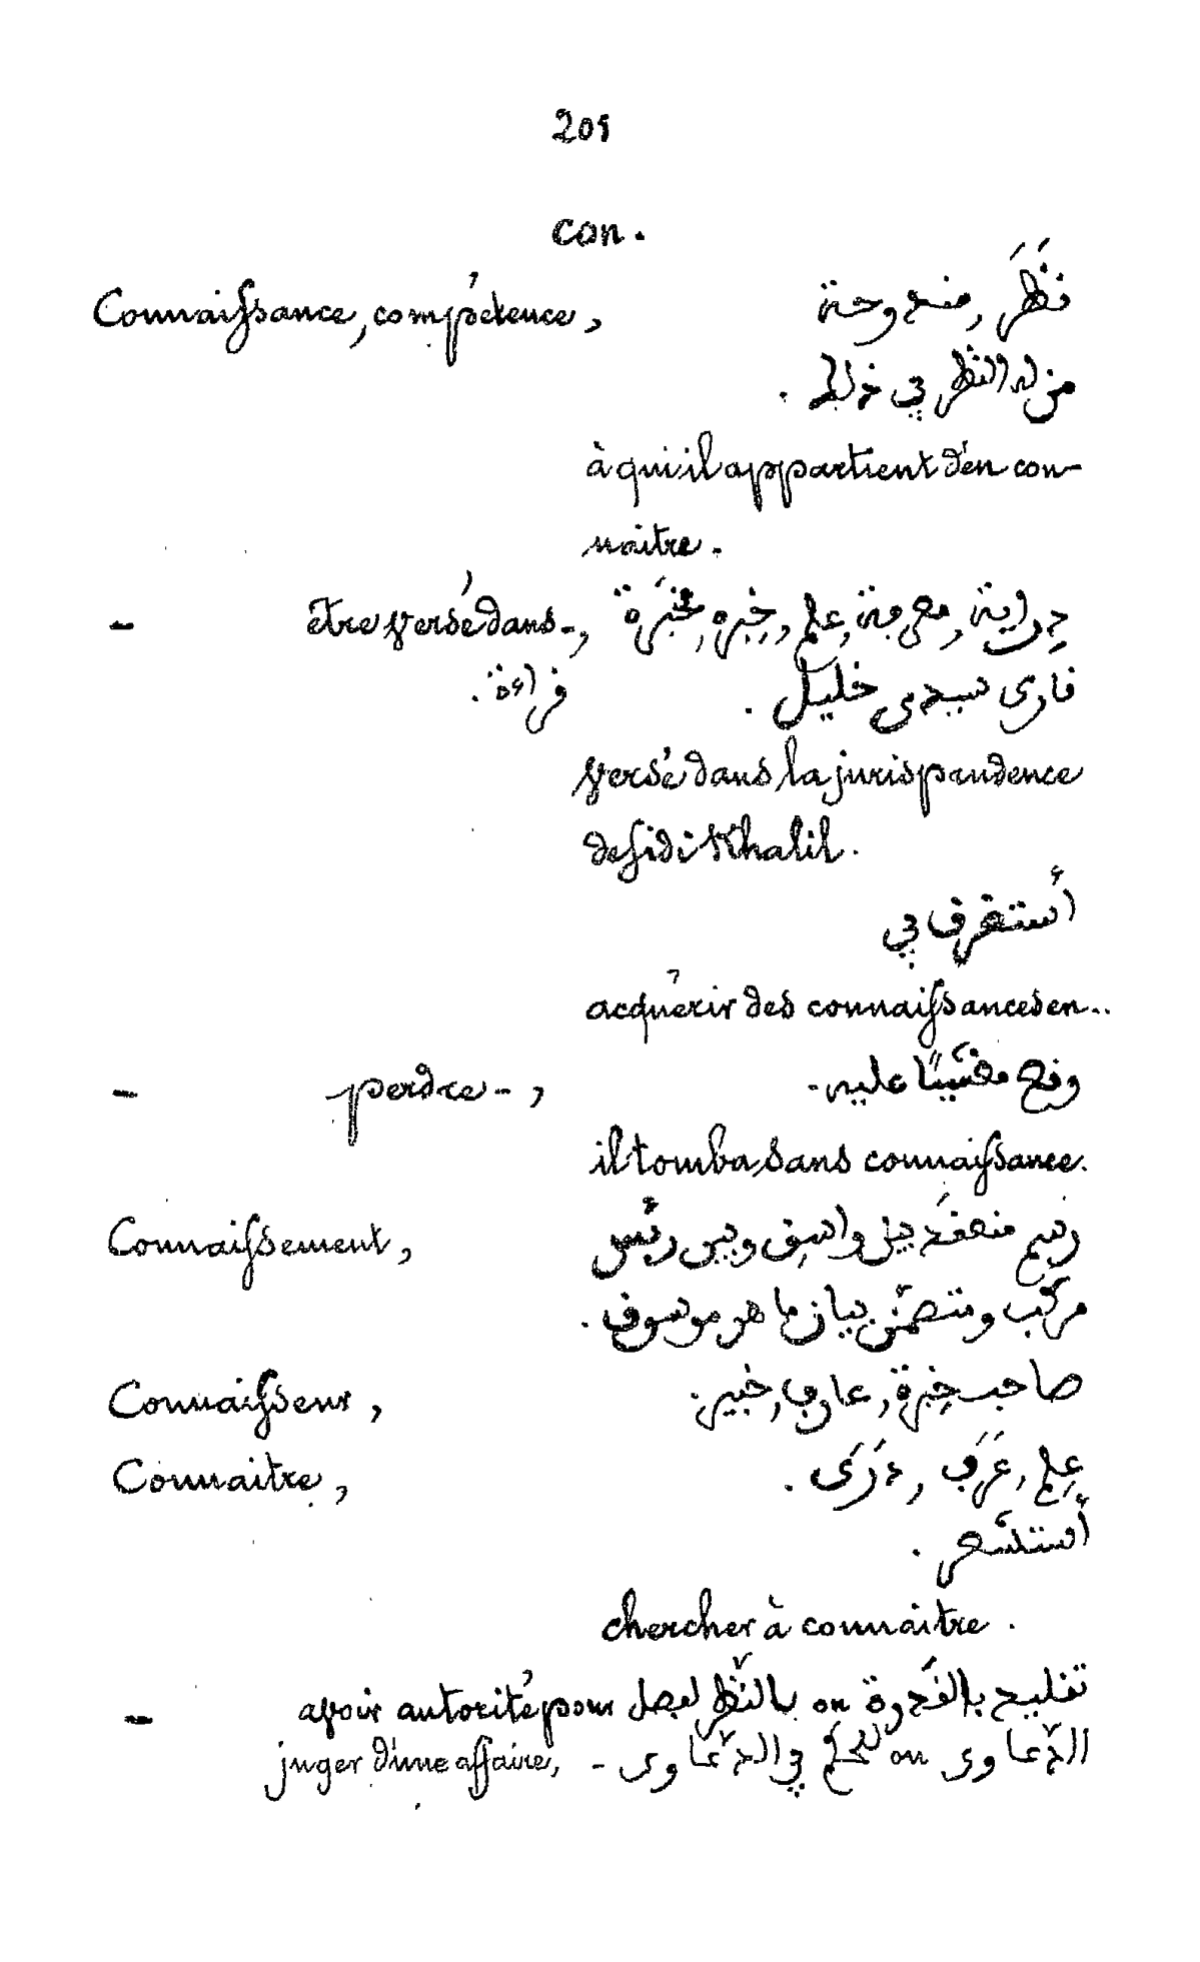 201
con.
Connaissance, compétence, نَظَرَ, مندوحة
من له النظر في ذلك.
à qui il appartient d'en con-
naitre.
- être versé dans -, دِراية, معرفة, عِلم, خِبره, مَخْبَرة
قارى سيدى خليل. قراءة.
versé dans la jurisprudence
de Sidi Khalil.
أستغرف في
acquérir des connaissances en..
- perdre -, وقع مغشيًّا عليه.
il tomba sans connaissance.
Connaissement, رسم منعقَد بين واسِق وبين رئيس
مركّب ومتضمّن بيان ما هو موسوق.
Connaisseur, صاحب خِبرة, عارف, خبير.
Connaitre, عِلم, عَرَف, دَرَى.
أستشعر.
chercher à connaitre.
- avoir autorité pour تقليد بالقَدرة ou بالنّظر لفصل
juger d'une affaire, الدّعاوى ou للحكم في الدّعاوى -